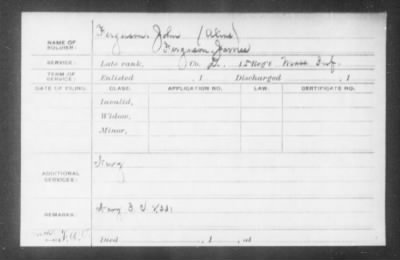 Ferguson, John (Alias)
NAME OF SOLDIER:
Ferguson, James
SERVICE: Late rank, Co. D. 15 Reg't Mass Inf.
TERM OF SERVICE: Enlisted , 1 Discharged , 1
DATE OF FILING. CLASS. APPLICATION NO. LAW. CERTIFICATE NO.
Invalid,
Widow,
Minor,
ADDITIONAL SERVICES: Navy
REMARKS: Navy
Died , 1 , at